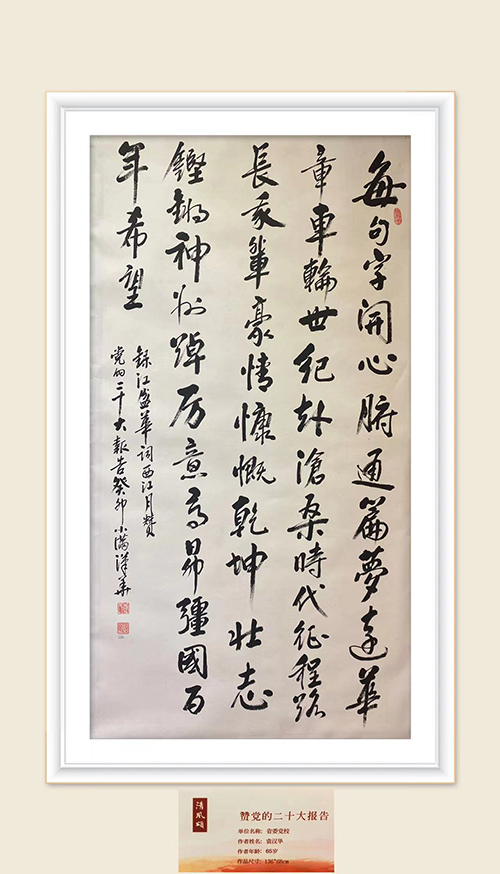 每句字開心腑通篇夢達華
章車輪世紀赴滄桑時代征程路
長我輩豪情慷慨乾坤壯志
鏗鏘神州踔厉意高昂疆國百
年希望
録江盛華詞西江月贊
党的二十大報告癸卯小滿漢華
清风颂
赞党的二十大报告
单位名称: 省委党校
作者姓名: 袁汉华
作者年龄: 65岁
作品尺寸: 136*68cm